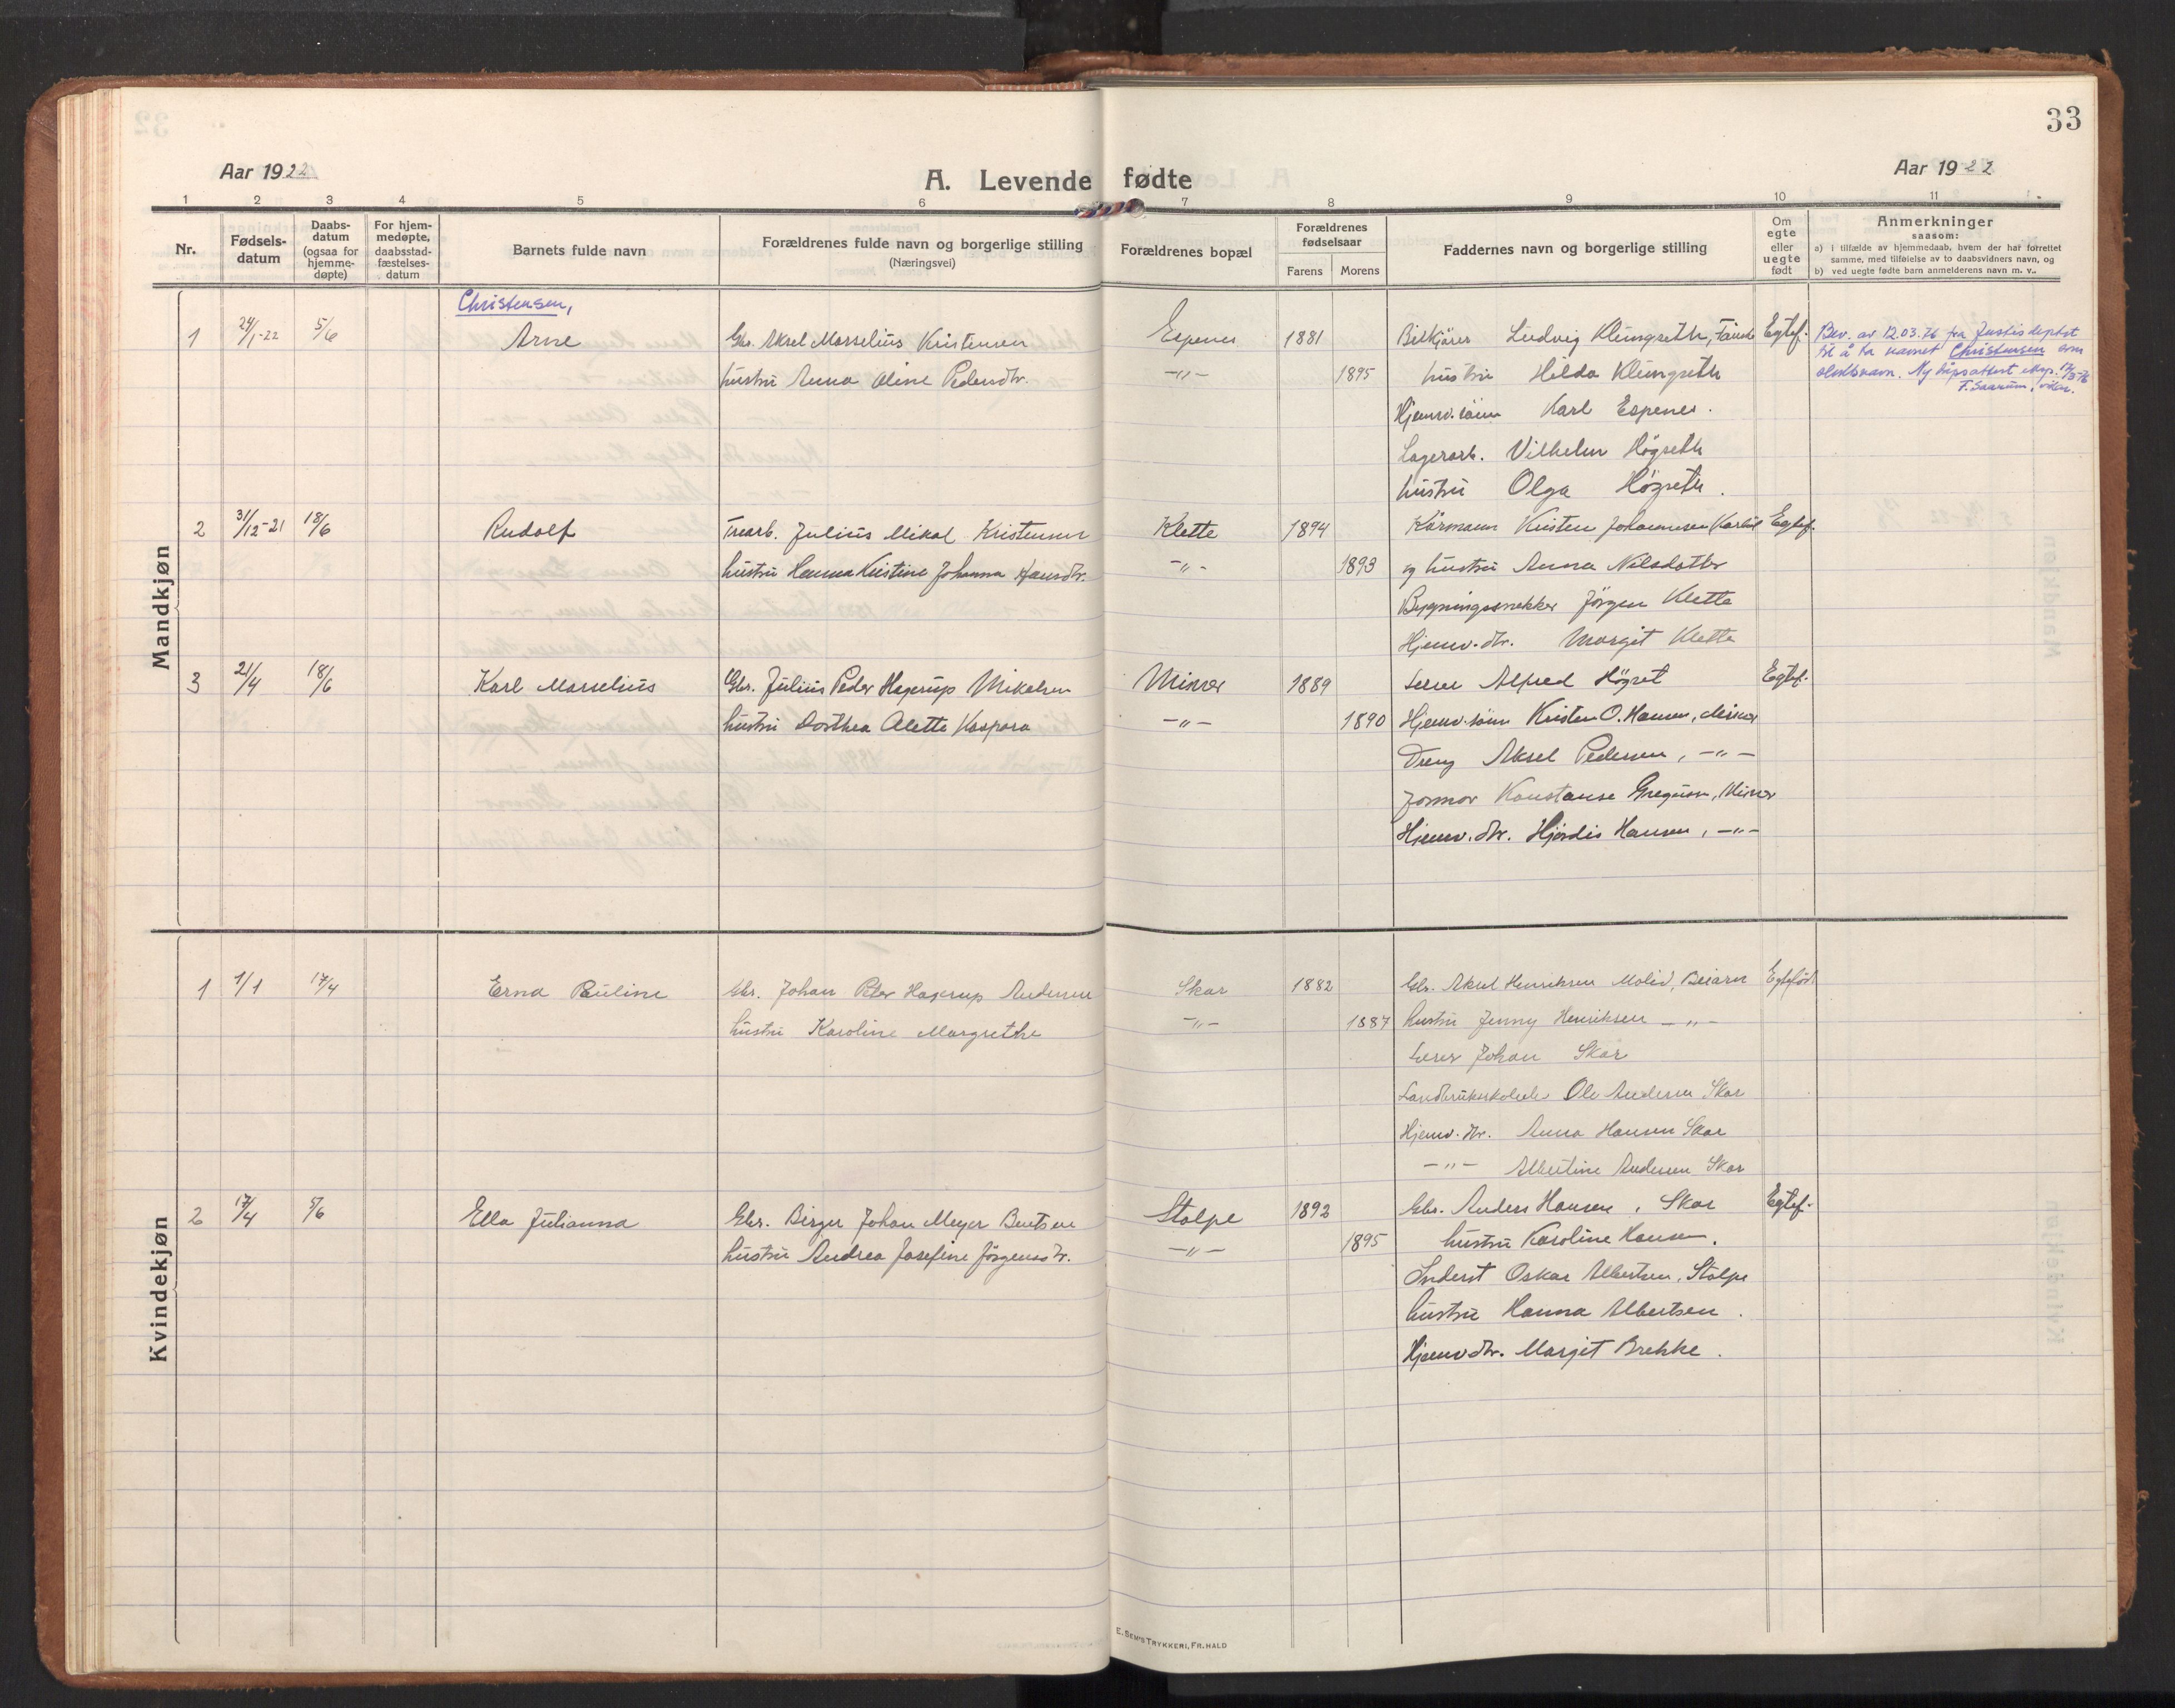 33
Aar 1922
A. Levende fødte
Aar 1922
1 2 3 4 5 6 7 8 9 10 11
Nr.
Fødsels-datum
Daabs-datum (ogsaa for hjemme-døpte)
For hjem-medøpte, daabsstad-fæstelses-datum
Barnets fulde navn
Forældrenes fulde navn og borgerlige stilling (Næringsvei)
Forældrenes bopæl
Forældrenes fødselsaar
Farens Morens
Faddernes navn og borgerlige stilling
Om egte eller uegte født
Anmerkninger
saasom:
a) i tilfælde av hjemmedaab, hvem der har forrettet
samme, med tilføielse av to daabsvidners navn, og
b) ved uegte fødte barn anmelderens navn m. v..
Mandkjøn
Christensen,
1 24/1-22 5/6 Arne Gbr. Aksel Marselius Kristensen Espenes 1881 Bilkjører Ludvig Klungseth, Fauske Egtef. Bev. av 12.03.76 fra Justisdeptet
hustru Anna Oline Pedersdtr. -"- 1895 hustru Hilda Klungseth til å ta navnet Christensen som
Hjemv. søn Karl Espenes. slektsnavn. Ny dåpsattest eksp. 17/3-76
Lagerarb. Vilhelm Høgseth
hustru Olga Høgseth.
2 31/12-21 18/6 Rudolf Trearb. Julius Mikal Kristensen Klette 1894 Kårmann Kristen Johannesen Egtef.
hustru Hanna Kristine Johanna Hansdtr. -"- 1893 og hustru Anna Nilsdatter
Bygningssnekker Jörgen Klette
Hjemv. dtr. Margit Klette
3 21/4 18/6 Karl Marselius Gbr. Julius Peder Hagerup Mikalsen Misvær 1889 Lærer Alfred Högset Egtef.
hustru Dorthea Alette Kaspara -"- 1890 Hjemv. søn Kristen O. Hansen, Misvær
Dreng Aksel Pedersen, -"-
Jormor Konstanse Gregusen, Misvær
Hjemv. dtr. Hjørdis Hansen, -"-
Kvindekjøn
1 1/1 17/4 Erna Pauline Gbr. Johan Peter Hagerup Andersen Skar 1882 Gbr. Aksel Henriksen Molid, Beiarn Egtefödt
hustru Karoline Margrethe -"- 1887 hustru Jenny Henriksen -"-
Lærer Johan Skar
Landbruksskoleelev Ole Andersen Skar
Hjemv. dtr. Anna Hansen Skar
-"- Albertine Andersen Skar
2 17/4 5/6 Ella Julianna Gbr. Birger Johan Meyer Bentsen Stolpe 1892 Gbr. Anders Hansen, Skar Egtef.
hustru Andrea Josefine Jörgensdtr. -"- 1895 hustru Karoline Hansen.
Inderst Oskar Albertsen, Stolpe
hustru Hanna Albertsen.
Hjemv dtr. Margit Brekke.
E. SEM'S TRYKKERI, FR.HALD